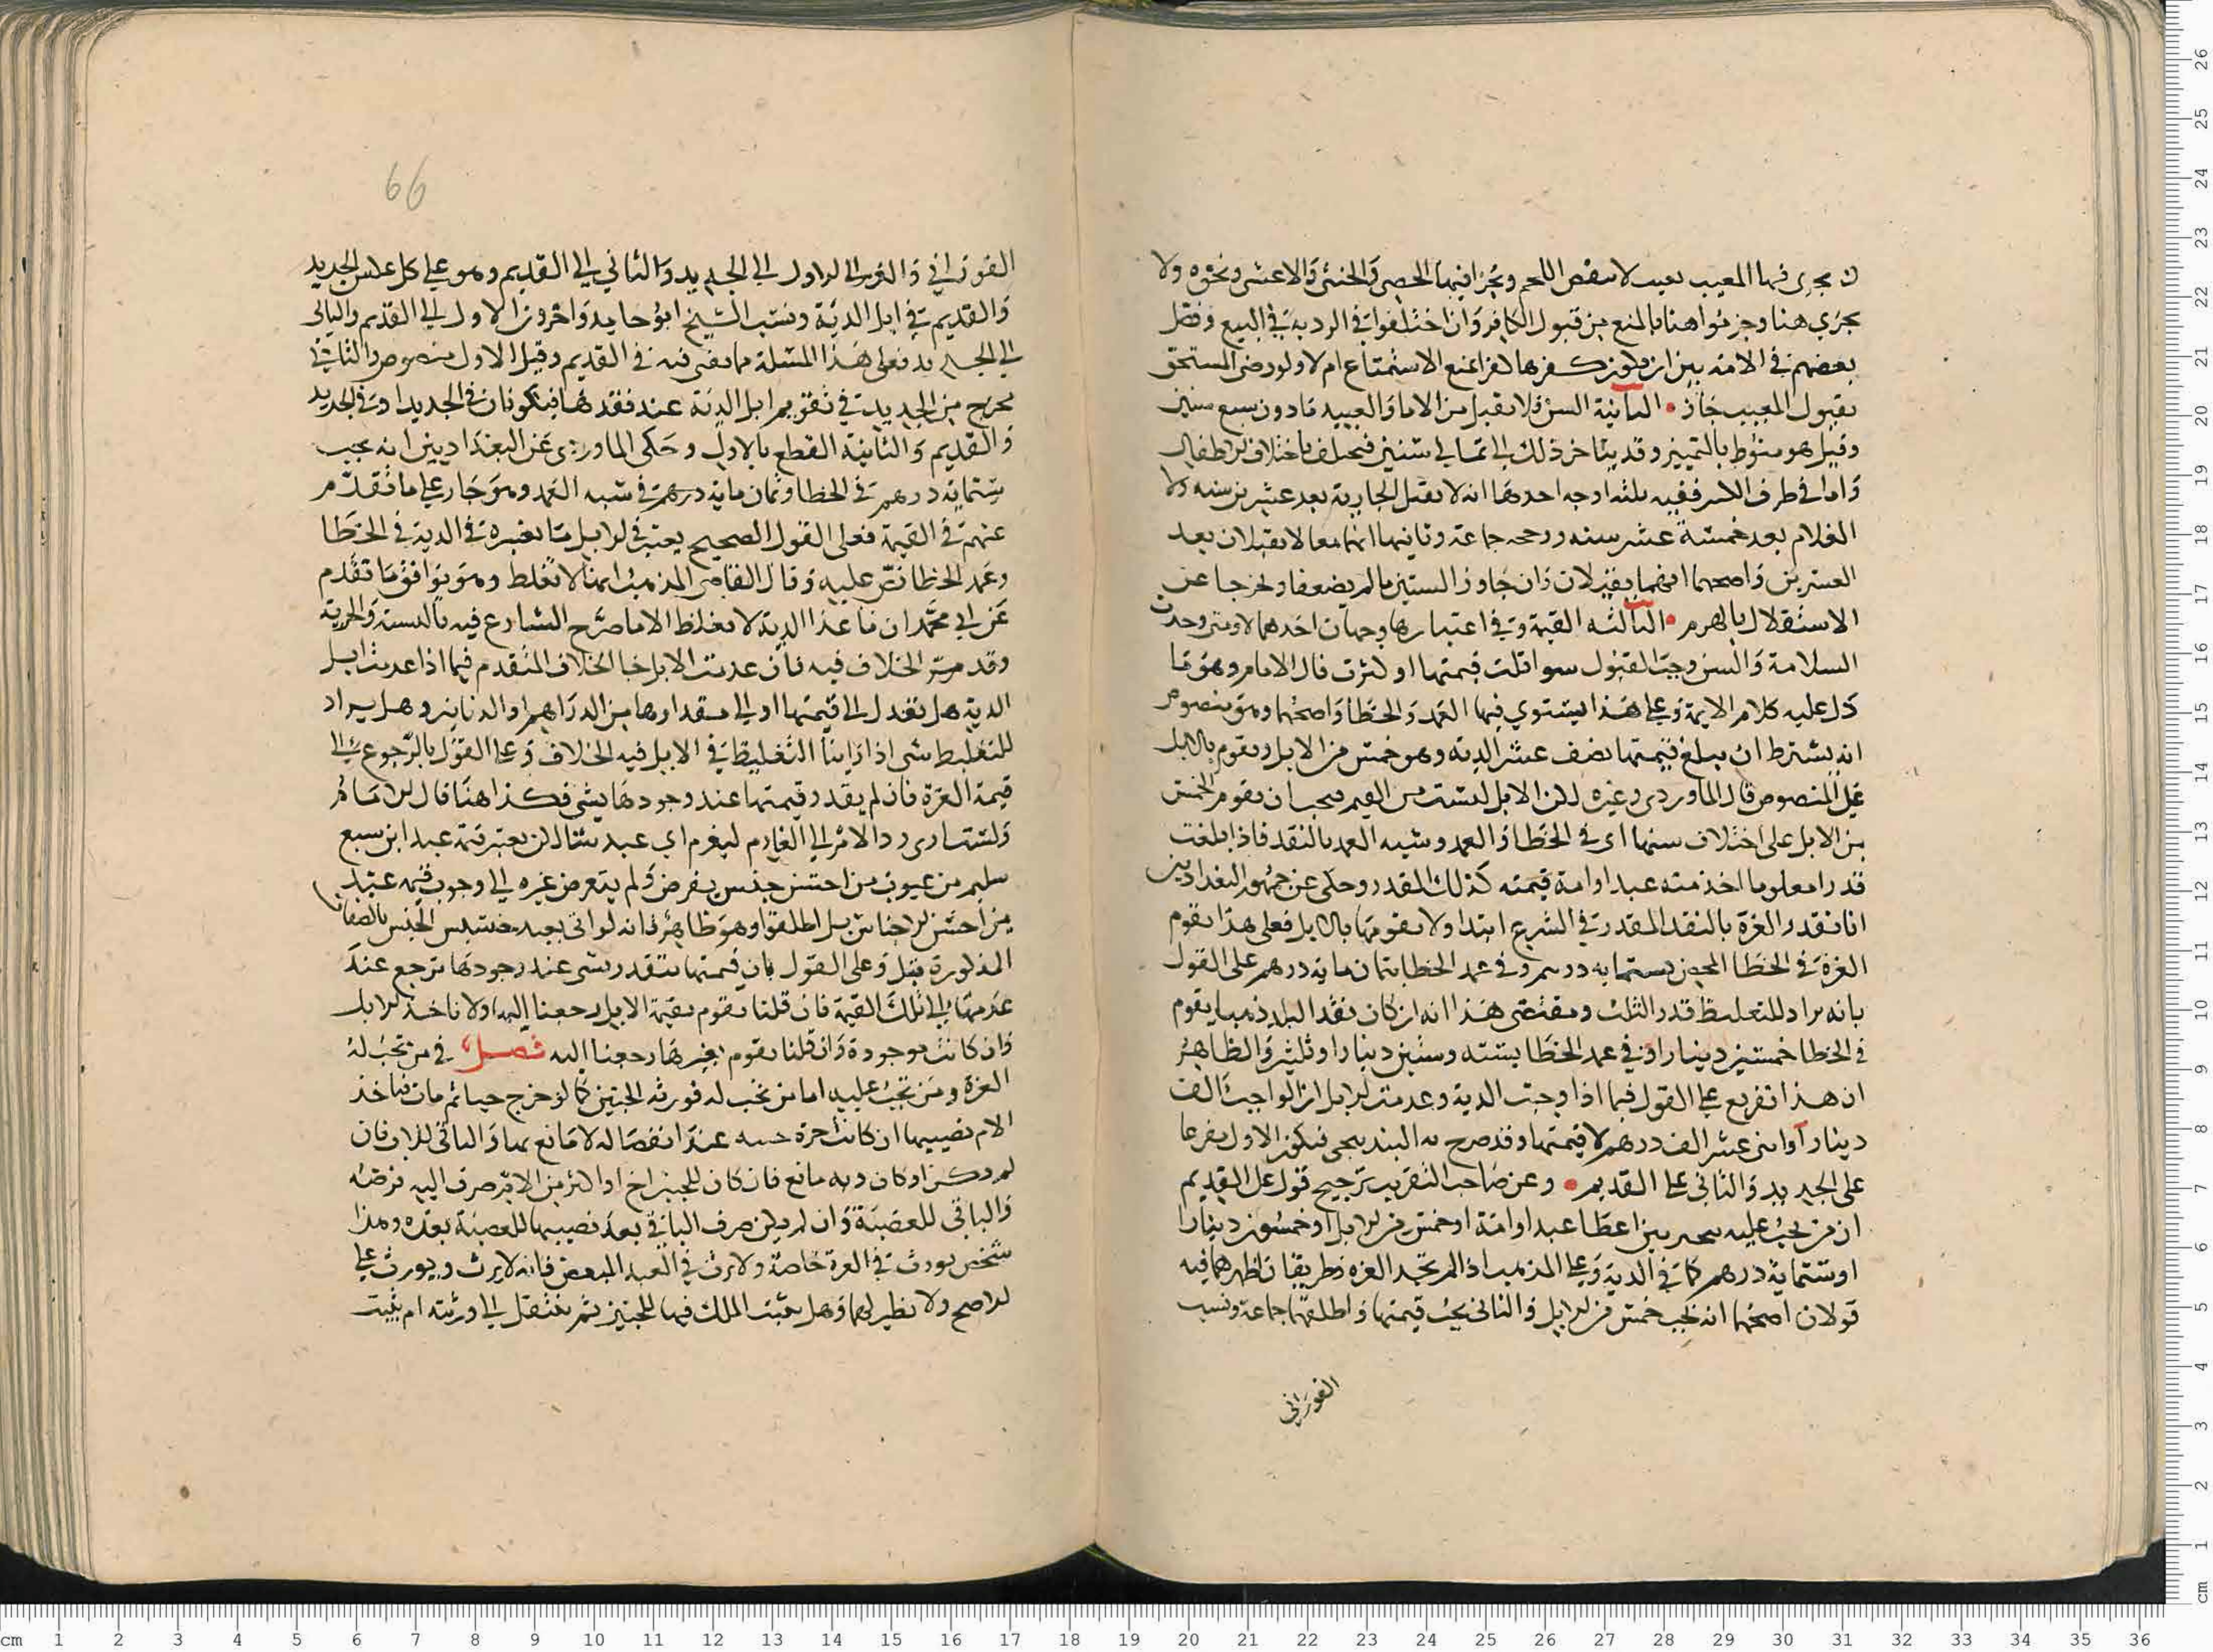 ان يجري فيها المعيب بعيب لا ينقص اللحم ويجزا فيها الخصي والخنثى والاعشى ونحوه ولا
يجزي هنا وجزموا هنا بالمنع من قبول الكافر وان اختلفوا في الردية في البيع وفصل
بعضهم في الامة بين ان يكون كفرها كفرا يمنع الاستمتاع ام لا ولو رضي المستحق
بقبول المعيب جاز • الثانية السن فلا يقبل من الاما والعبيد ما دون سبع سنين
وقيل هو منوط بالتمييز وقد يتاخر ذلك الى ثماني سنين فيختلف باختلاف الاطفال
واما في طرف الاسن ففيه ثلثة اوجه احدها انه لا تقبل الجارية بعد عشرين سنه ولا
الغلام بعد خمسة عشر سنه ورجحه جماعة وثانيها انهما معا لا يقبلان بعد
العشرين واصحهما انهما يقبلان وان جاوزا الستين ما لم يضعفا ويخرجا عن
الاستقلال بالهرم • الثالثه القيمة وفي اعتبارها وجهان احدهما لا ومتى وجدت
السلامة والسن وجب القبول سوا قلت قيمتها او كثرت قال الامام وهو ما
دل عليه كلام الايمة وعلى هذا يستوي فيها العمد والخطا واصحهما وهو منصوص
انه يشترط ان يبلغ قيمتها نصف عشر الدية وهو خمس من الابل ويقوم بالابل
على المنصوص قال الماوردي وغيره لكن الابل ليست من القيم فيجب ان يقوم الخمس
من الابل على اختلاف سنها اي في الخطا والعمد وشبه العمد بالنقد فاذا بلغت
قدرا معلوما اخذ منه عبدا او امة قيمته كذلك القدر وحكى عن جمهور البغداديين
انا نقدر الغرة بالنقد المقدر في الشرع ابتدا ولا نقومها بالابل فعلى هذا نقوم
الغرة في الخطا المحض بستمايه درهم وفي عمد الخطا بثمان ماية درهم على القول
بانه يزاد للتغليظ قدر الثلث ومقتضى هذا انه ان كان نقد البلد ذهبا يقوم
في الخطا خمسين دينارا وفي عمد الخطا بستة وستين دينارا وثلثين والظاهر
ان هذا تفريع على القول فيما اذا وجبت الدية وعدمت الابل ان الواجب الف
دينار او اثنى عشر الف درهم لا قيمتها وقد صرح به البندنيجي فيكون الاول مفرعا
على الجديد والثاني على القديم • وعن صاحب التقريب ترجيح قول على القديم
ان من يجب عليه يتخير بين اعطا عبد او امة او خمس من الابل او خمسون دينارا
او ستماية درهم كما في الدية وعلى المذهب اذا لم تجد الغره فطريقان اظهرهما فيه
قولان اصحهما انه يجب خمس من الابل والثاني يجب قيمتها واطلقها جماعة ونسب
الفوراني
66
الفوراني والغزالي الاول الى الجديد والثاني الى القديم وهو على كل عكس الجديد
والقديم في ابل الدية ونسب الشيخ ابو حامد واخرون الاول الى القديم والثاني
الى الجديد فعلى هذه المسئلة مما يفتى فيه في القديم وقيل الاول منصوص والثاني
مخرج من الجديد في تقويم ابل الدية عند فقدها فيكونان في الجديد او في الجديد
والقديم والثانية القطع بالاول وحكى الماوردي عن البغداديين انه يجب
ستماية درهم في الخطا وثمان ماية درهم في شبه العمد وهو جار على ما تقدم
عنهم في القيمة فعلى القول الصحيح يعتبر في الابل ما نعتبره في الدية في الخطا
وعمد الخطا نص عليه وقال القاضي المذهب انها لا تغلظ وهو يوافق ما تقدم
عن ابي محمد ان ما عدا الدية لا تغلظ الا ما صرح الشارع فيه بالنسبة والحرية
وقد مر الخلاف فيه فان عدمت الابل جا الخلاف المتقدم فيما اذا عدمت ابل
الدية هل نعدل الى قيمتها او الى مقدارها من الدراهم او الدنانير وهل يزاد
للتغليظ شي اذا راينا التغليظ في الابل فيه الخلاف وعلى القول بالرجوع الى
قيمة الغرة فان لم يقدر قيمتها عند وجودها بشي فكذا هنا قال الامام
ولستتاري رد الامر الى الغارم ليغرم اي عبد شا لكن نعتبر قيمة عبد ابن سبع
سليم من عيوب من احسن جنس يفرض ولم يتعرض غيره الى وجوب قيمة عبد
من احسن الاجناس بل اطلقوا وهو ظاهر فانه لو اتى بعبد خسيس الجنس بالصفات
المذكورة قبل وعلى القول بان قيمتها تتقدر بشي عند وجودها نرجع عند
عدمها الى تلك القيمة فان قلنا يقوم بقيمة الابل رجعنا اليها ولا ناخذ الابل
وان كانت موجودة وان قلنا يقوم بغيرها رجعنا اليه فصل في من تجب له
الغرة ومن تجب عليه اما من تجب له فورثه الجنين كما لو خرج حيا ثم مات فتاخذ
الام نصيبها ان كانت حرة حيه عند انفصاله لا مانع بها والباقي للاب فان
لم يكن او كان وبه مانع فان كان للجنين اخ او اكثر من الام صرف اليه فرضه
والباقي للعصبة وان لم يكن صرف الباقي بعد نصيبها للعصبة بعده وهذا
شخص يورث في الغرة خاصة ولا يرث في العبد المبعض فانه لا يرث ويورث على
الاصح ولا نظير لهما وهل يثبت الملك فيها للجنين ثم ينتقل الى ورثته ام يثبت